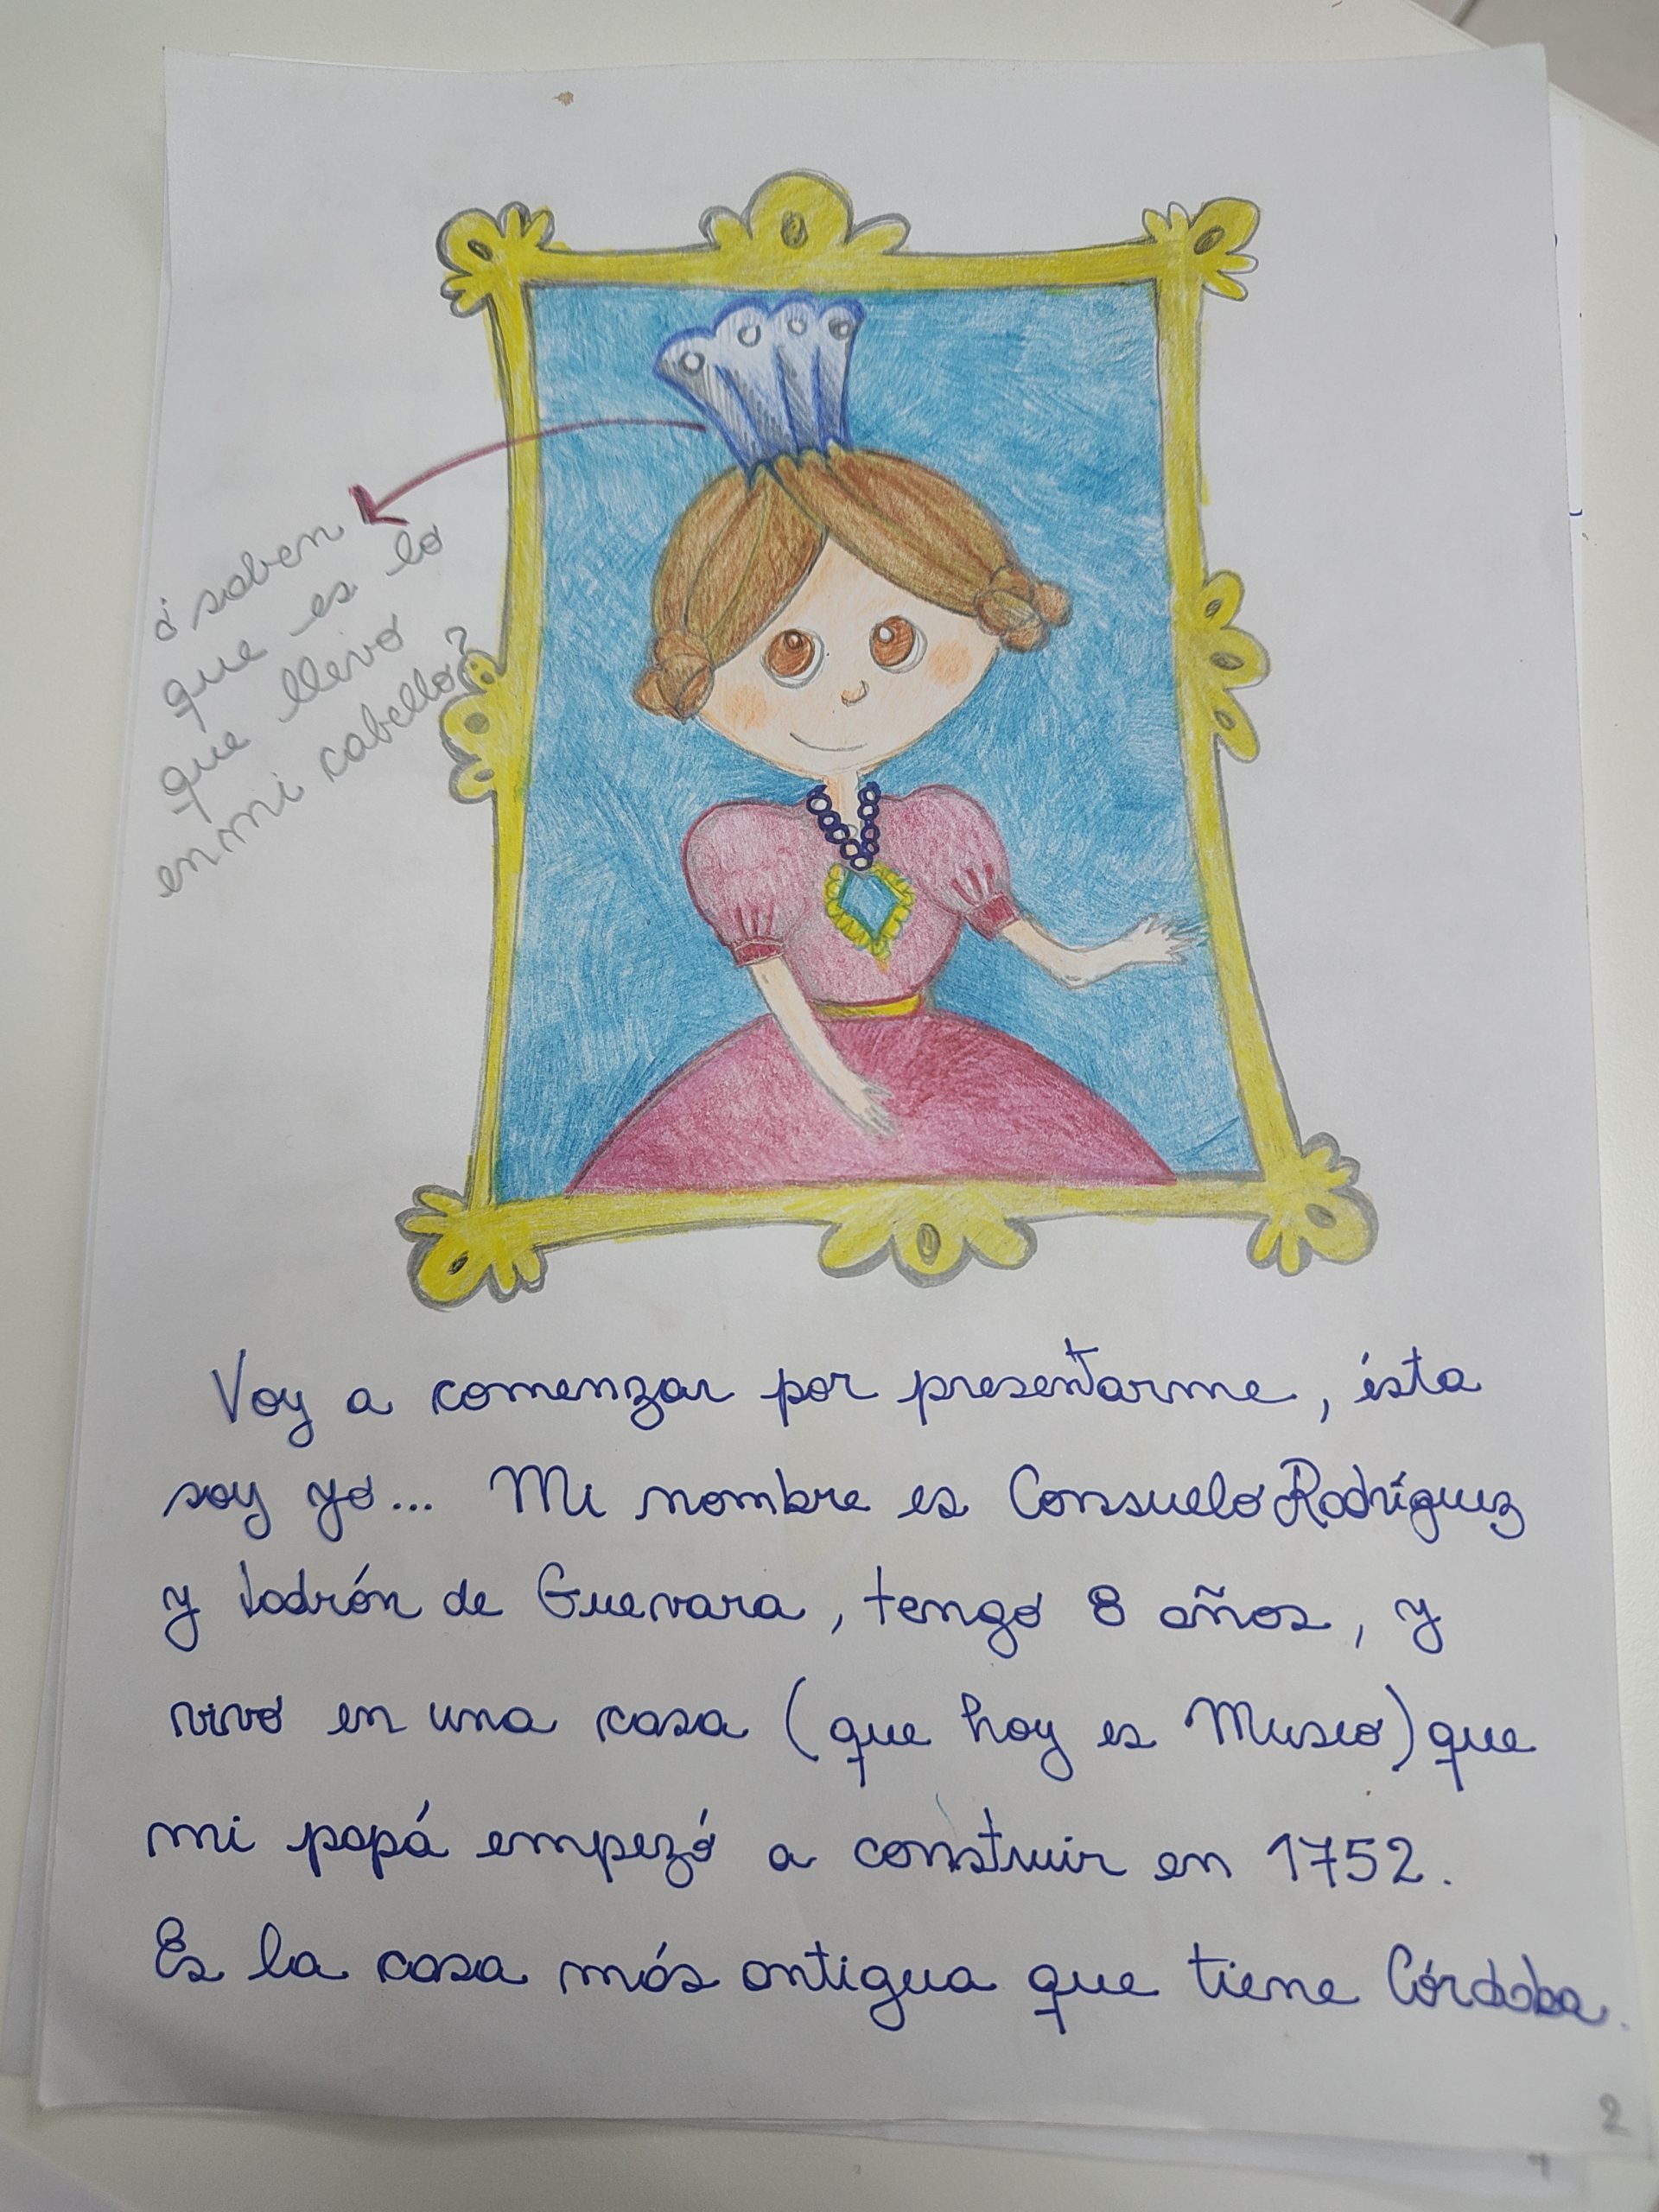 ¿saben
que es lo
que llevo
en mi cabello?
Voy a comenzar por presentarme, ésta
soy yo... Mi nombre es Consuelo Rodríguez
y Ladrón de Guevara, tengo 8 años, y
vivo en una casa (que hoy es Museo) que
mi papá empezó a construir en 1752.
Es la casa más antigua que tiene Córdoba.
2